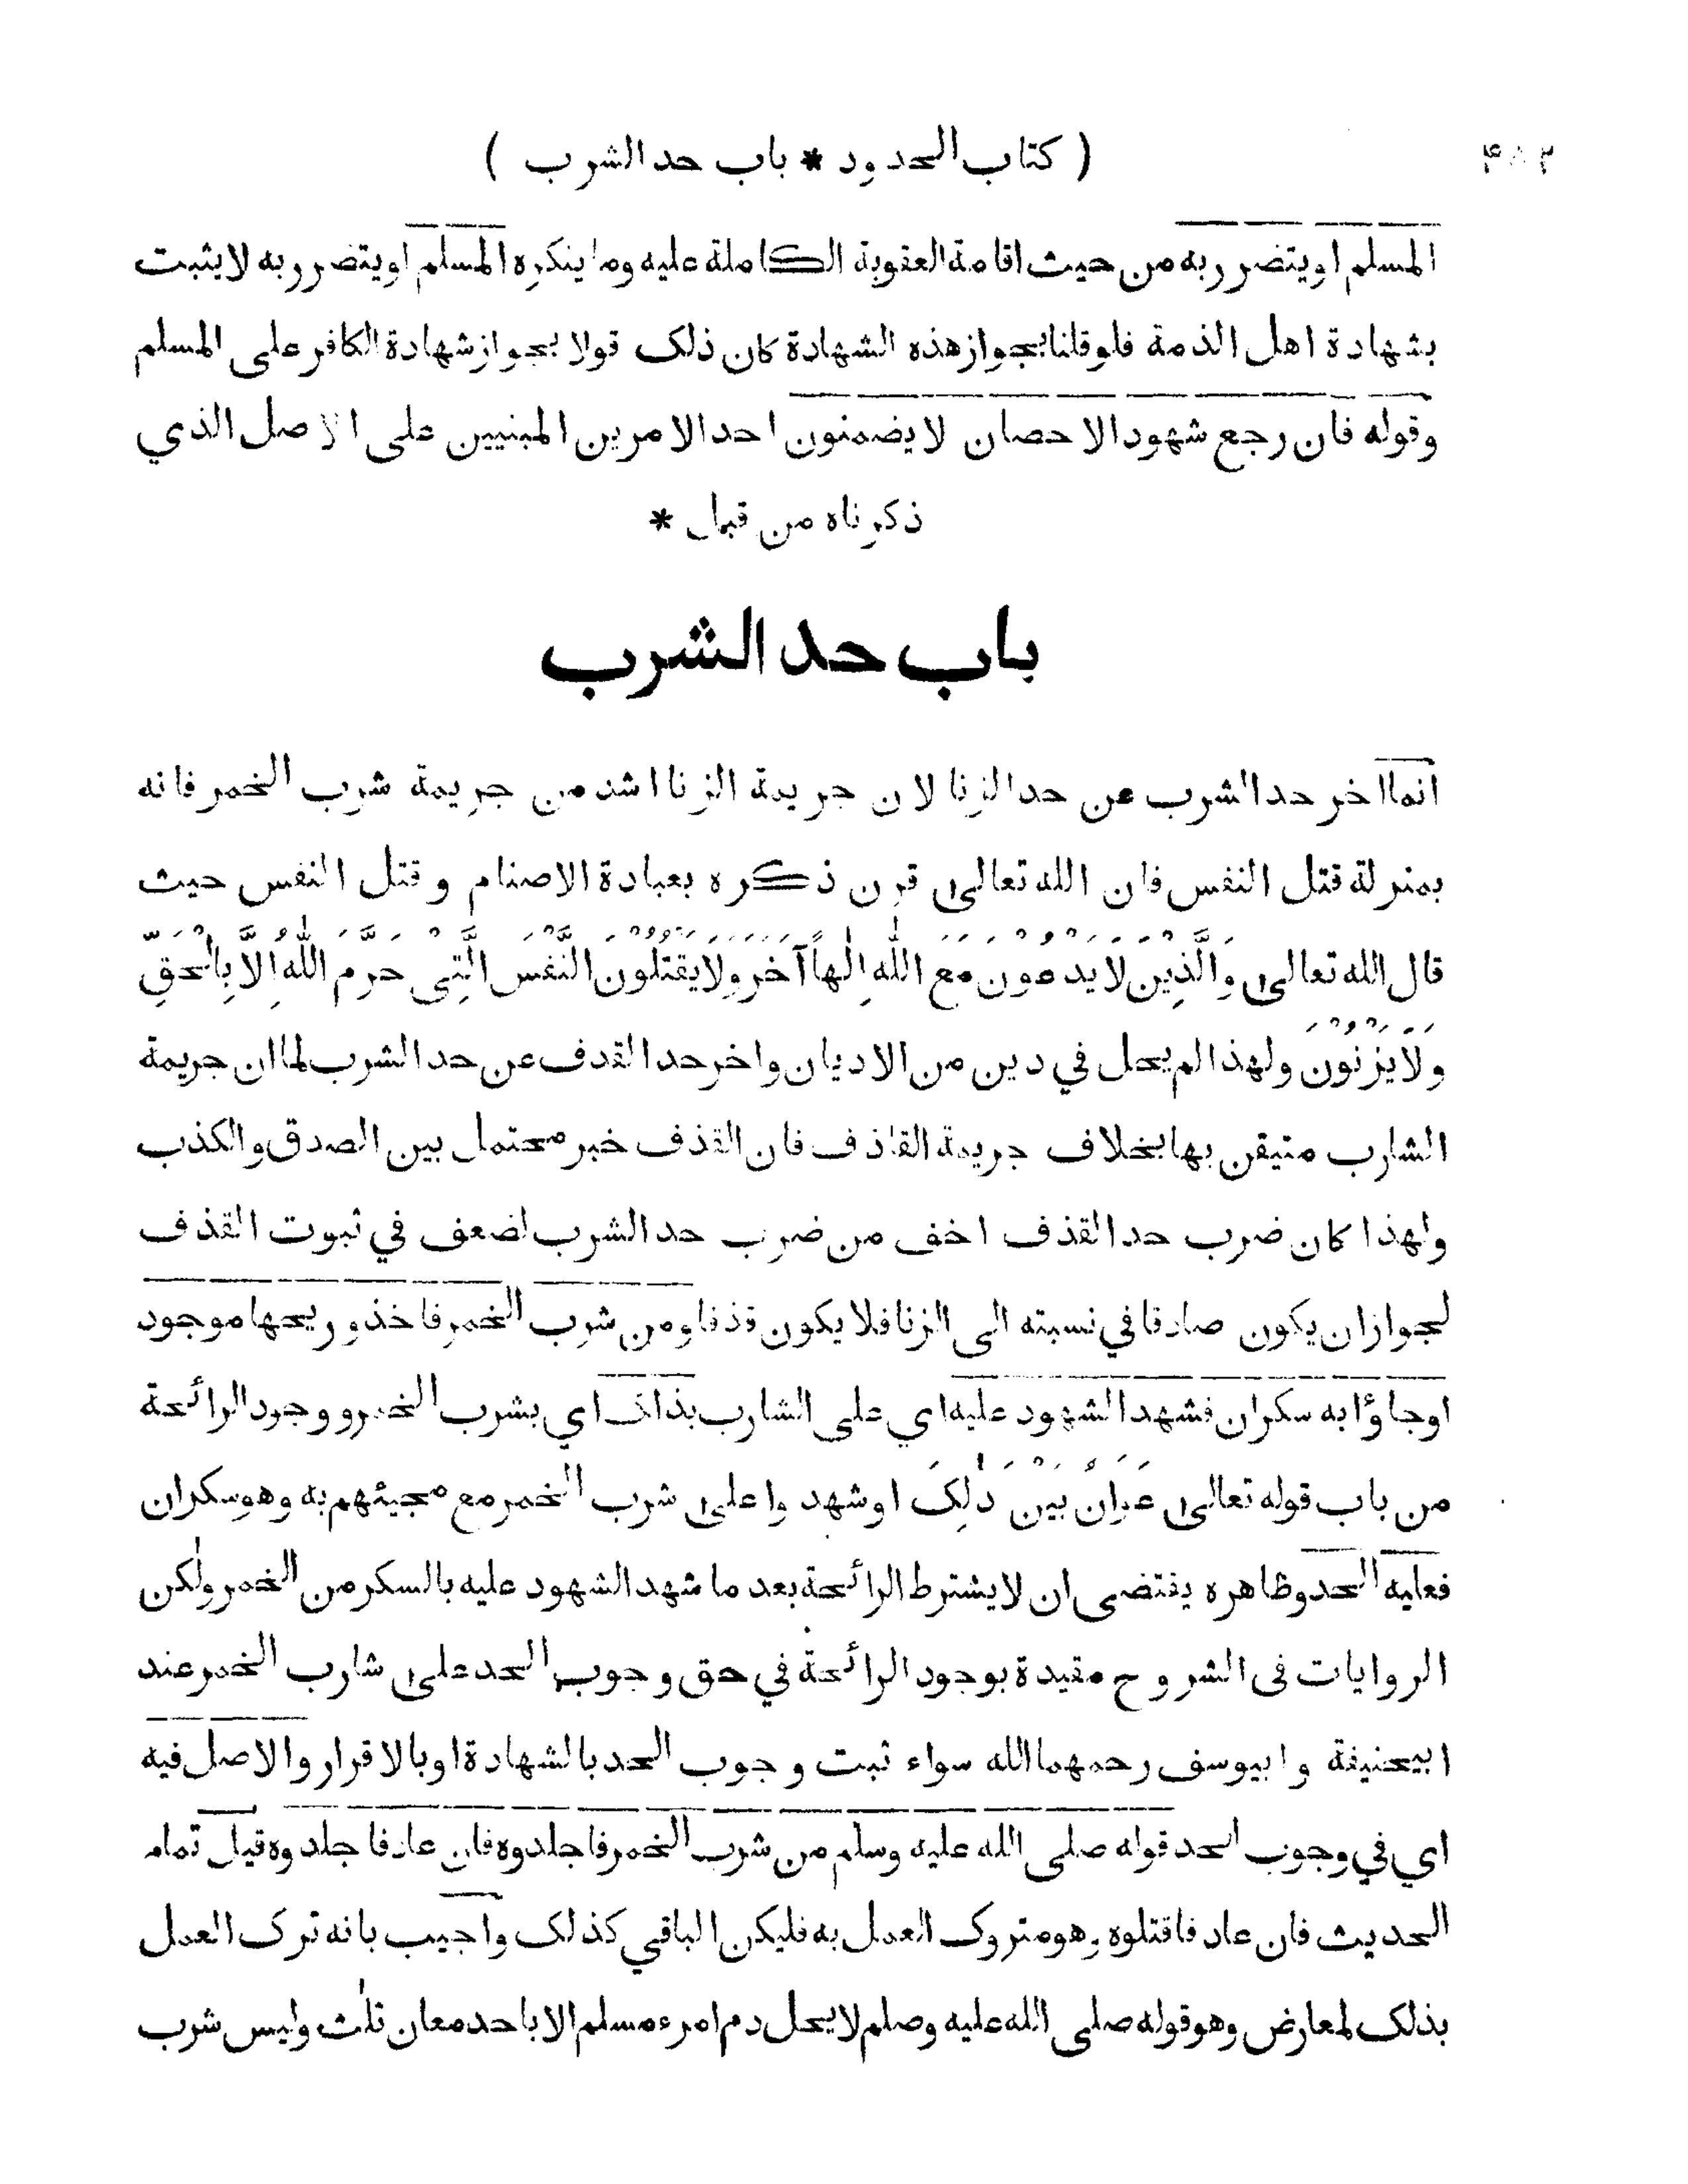 ( كتاب الحدود * باب حد الشرب )
۴۸۲
المسلم او يتضرر به من حيث اقامة العقوبة الكاملة عليه وما ينكره المسلم او يتضرر به لا يثبت
بشهادة اهل الذمة فلو قلنا بجواز هذه الشهادة كان ذلک قولا بجواز شهادة الكافر على المسلم
وقوله فان رجع شهود الاحصان لا يضمنون احد الامرين المبنيين على الاصل الذي
ذكرناه من قبل *
باب حد الشرب
انما اخر حد الشرب عن حد الزنا لان جريمة الزنا اشد من جريمة شرب الخمر فانه
بمنزلة قتل النفس فان الله تعالى قرن ذكره بعبادة الاصنام وقتل النفس حيث
قال الله تعالى وَالَّذِينَ لَا يَدْعُونَ مَعَ اللّٰهِ اِلٰهاً آخَرَ وَلَا يَقْتُلُونَ النَّفْسَ الَّتِى حَرَّمَ اللّٰهُ اِلَّا بِالْحَقِّ
وَلَا يَزْنُوْنَ ولهذا لم يحل في دين من الاديان واخر حد القذف عن حد الشرب لما ان جريمة
الشارب متيقن بها بخلاف جريمة القاذف فان القذف خبر محتمل بين الصدق والكذب
ولهذا كان ضرب حد القذف اخف من ضرب حد الشرب لضعف في ثبوت القذف
لجواز ان يكون صادقا في نسبته الى الزنا فلا يكون قذفا ومن شرب الخمر فاخذ وريحها موجود
او جاؤا به سكران فشهد الشهود عليه اي على الشارب بذلک اي بشرب الخمر ووجود الرائحة
من باب قوله تعالى عَوَانٌ بَيْنَ ذٰلِکَ او شهدوا على شرب الخمر مع مجيئهم به وهو سكران
فعليه الحد وظاهره يقتضى ان لا يشترط الرائحة بعد ما شهد الشهود عليه بالسكر من الخمر ولٰكن
الروايات فى الشروح مقيدة بوجود الرائحة في حق وجوب الحد على شارب الخمر عند
ابيحنيفة وابيوسف رحمهما الله سواء ثبت وجوب الحد بالشهادة او بالاقرار والاصل فيه
اي في وجوب الحد قوله صلى الله عليه وسلم من شرب الخمر فاجلدوه فان عاد فاجلدوه قيل تمام
الحديث فان عاد فاقتلوه وهو متروک العمل به فليكن الباقي كذلک واجيب بانه ترک العمل
بذلک لمعارض وهو قوله صلى الله عليه وصلم لا يحل دم امرء مسلم الا باحد معان ثلٰث وليس شرب